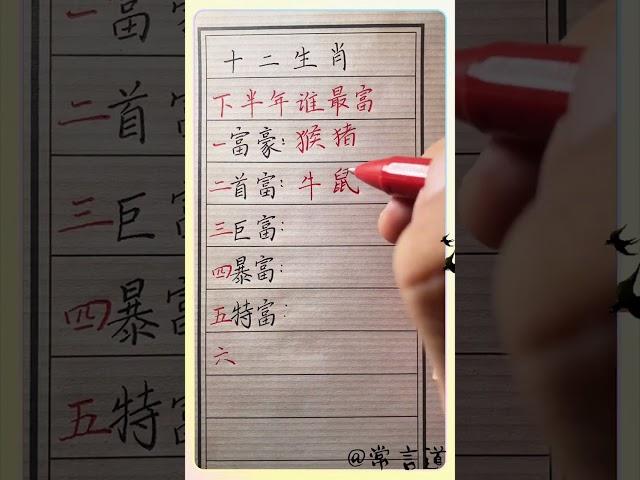 十二生肖
下半年谁最富
一富豪：猴猪
二首富：牛鼠
三巨富：
四暴富：
五特富：
六
@常言道